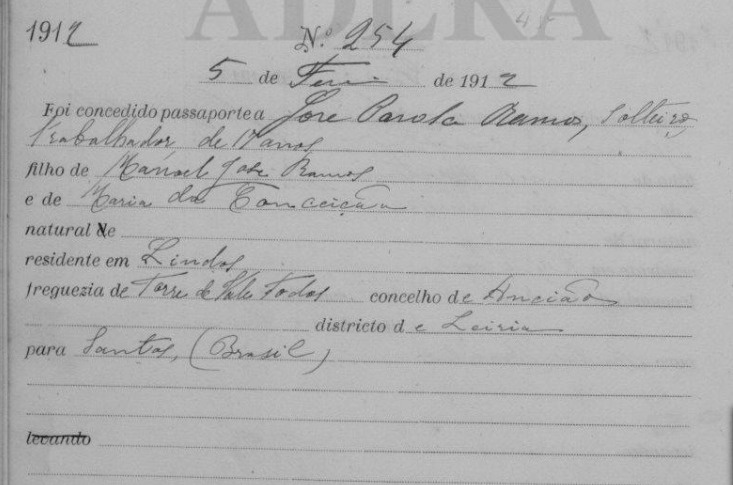 ADLRA
1912 Nº 254
5 de Fev. de 1912
Foi concedido passaporte a José Parola Ramos, solteiro,
trabalhador, de 17 annos
filho de Manoel José Ramos
e de Maria da Conceição
natural de
residente em Lindos
freguezia de Torre de Vale Todos concelho de Ancião
districto de Leiria
para Santos, (Brasil)
levando